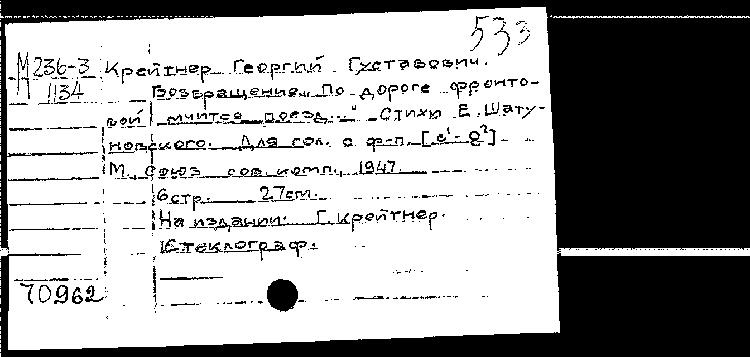 533
М 236-3 Крейтнер Георгий Густавович.
1134 Возвращение „По дороге фронто-
вой мчится поезд..." Стихи Е. Шату-
новского. Для гол. с ф-п. [c¹-g²]
М., Союз сов. комп., 1947.
6 стр. 27 см.
На издании: Г. Крейтнер.
Стеклограф.
70962